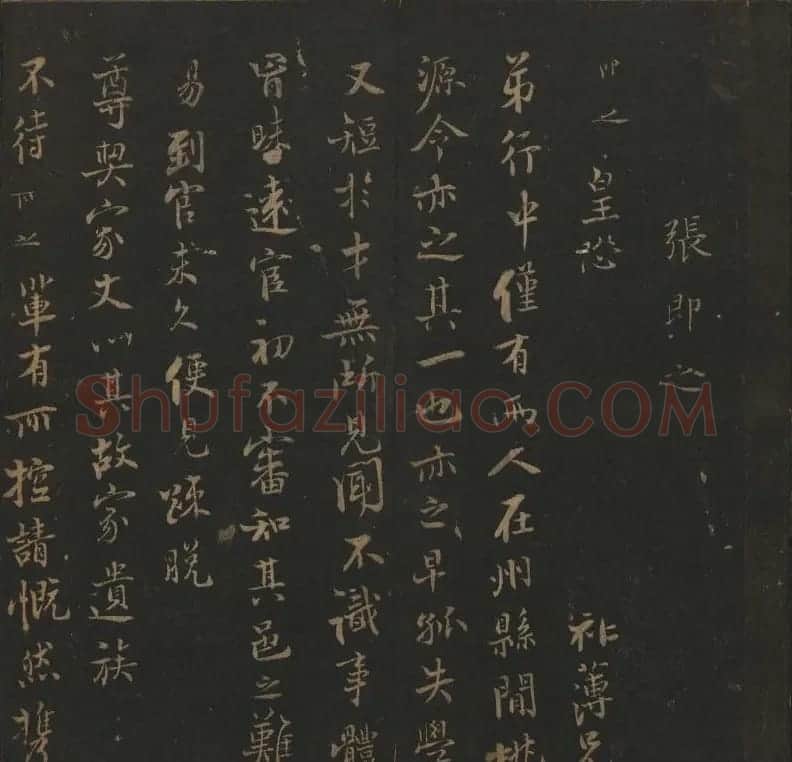 張即之
即之皇恐 祚薄兄
弟行中僅有兩人在州縣間桃
源令亦之其一也亦之早孤失學
又短於才無所見聞不識事體
冒昧遠宦初不審知其邑之難
易到官未久便見踈脫
尊契家丈以其故家遺族
不待 即之輩有所控請慨然
Shufaziliao.COM